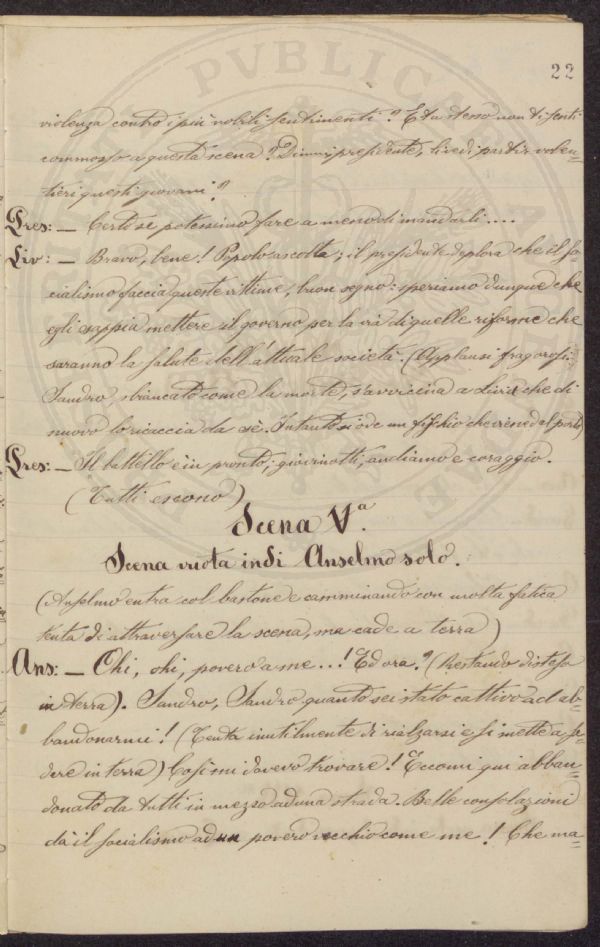 22
violenza contro i più nobili sentimenti? E tu stesso non ti senti
commosso a questa scena? Dimmi presidente, li vedi partir volen=
tieri questi giovani?
Pres: — Certo se potessimo fare a meno di mandarli....
Liv: — Bravo, bene! Popolo ascolta; il presidente deplora che il so=
cialismo faccia queste vittime, buon segno: speriamo dunque che
egli sappia mettere il governo per la via di quelle riforme che
saranno la salute dell'attuale società. (Applausi fragorosi.
Sandro sbiancato come la morte, s'avvicina a Livia che di
nuovo lo ricaccia da sè. Intanto si ode un fischio che viene dal porto)
Pres: — Il battello è in pronto; giovinotti, andiamo e coraggio.
(Tutti escono)
Scena Vª.
Scena vuota indi Anselmo solo.
(Anselmo entra col bastone e camminando con molta fatica
tenta di attraversare la scena, ma cade a terra)
Ans: — Ohi, ohi, povero a me...! Ed ora? (Restando disteso
in terra). Sandro, Sandro quanto sei stato cattivo ad ab=
bandonarmi! (Tenta inutilmente di rialzarsi e si mette a se=
dere in terra) Così mi dovevo trovare! Eccomi qui abban=
donato da tutti in mezzo ad una strada. Belle consolazioni
dà il socialismo ad un povero vecchio come me! Che ma=
PVBLICA